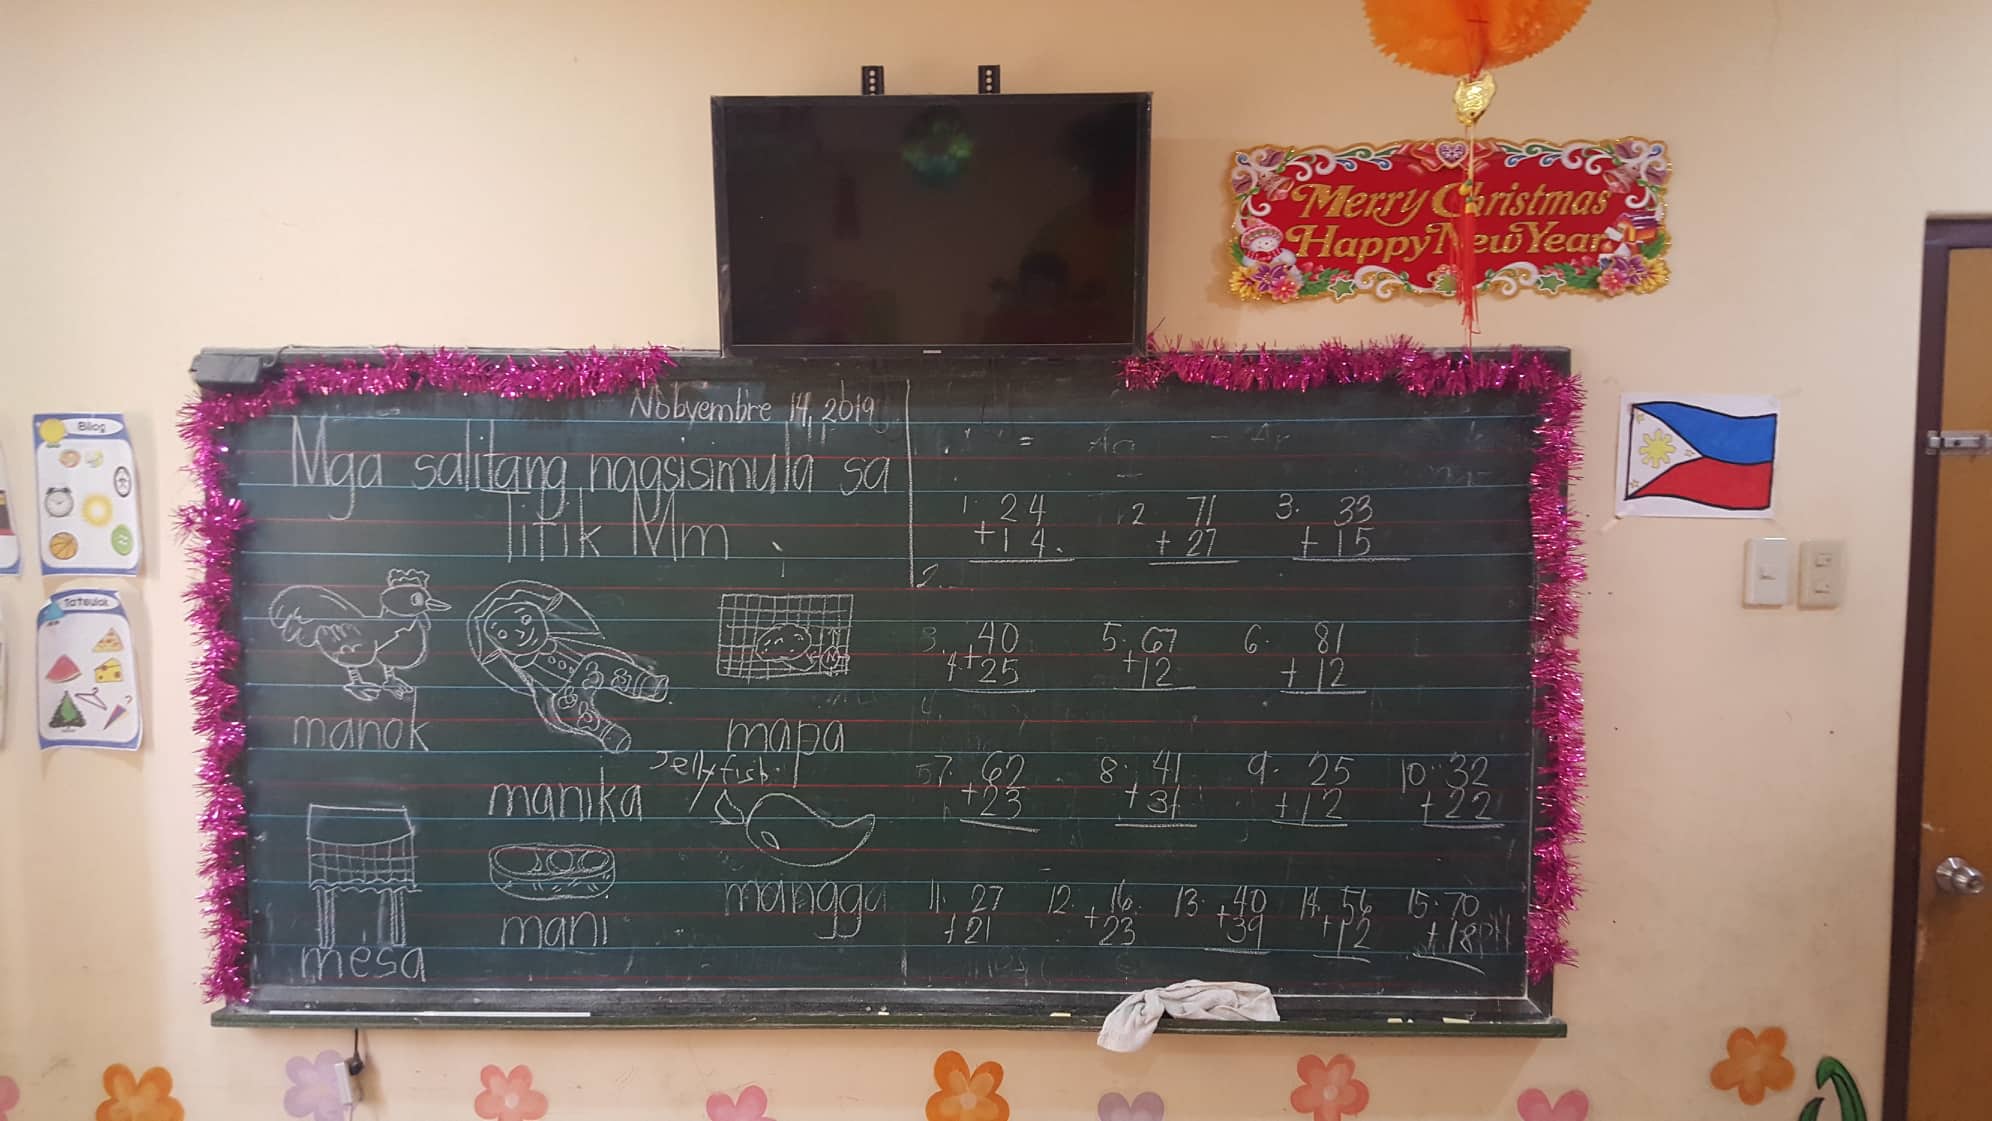 Merry Christmas
Happy New Year
Bilog
Tatsulok
Nobyembre 14, 2019
Mga salitang nagsisimula sa
Titik Mm
manok
manika
mapa
Jellyfish
mesa
mani
mangga
1. 24
+14
2. 71
+27
3. 33
+15
4. 40
+25
5. 67
+12
6. 81
+12
7. 62
+23
8. 41
+31
9. 25
+12
10. 32
+22
11. 27
+21
12. 16
+23
13. 40
+39
14. 56
+12
15. 70
+18